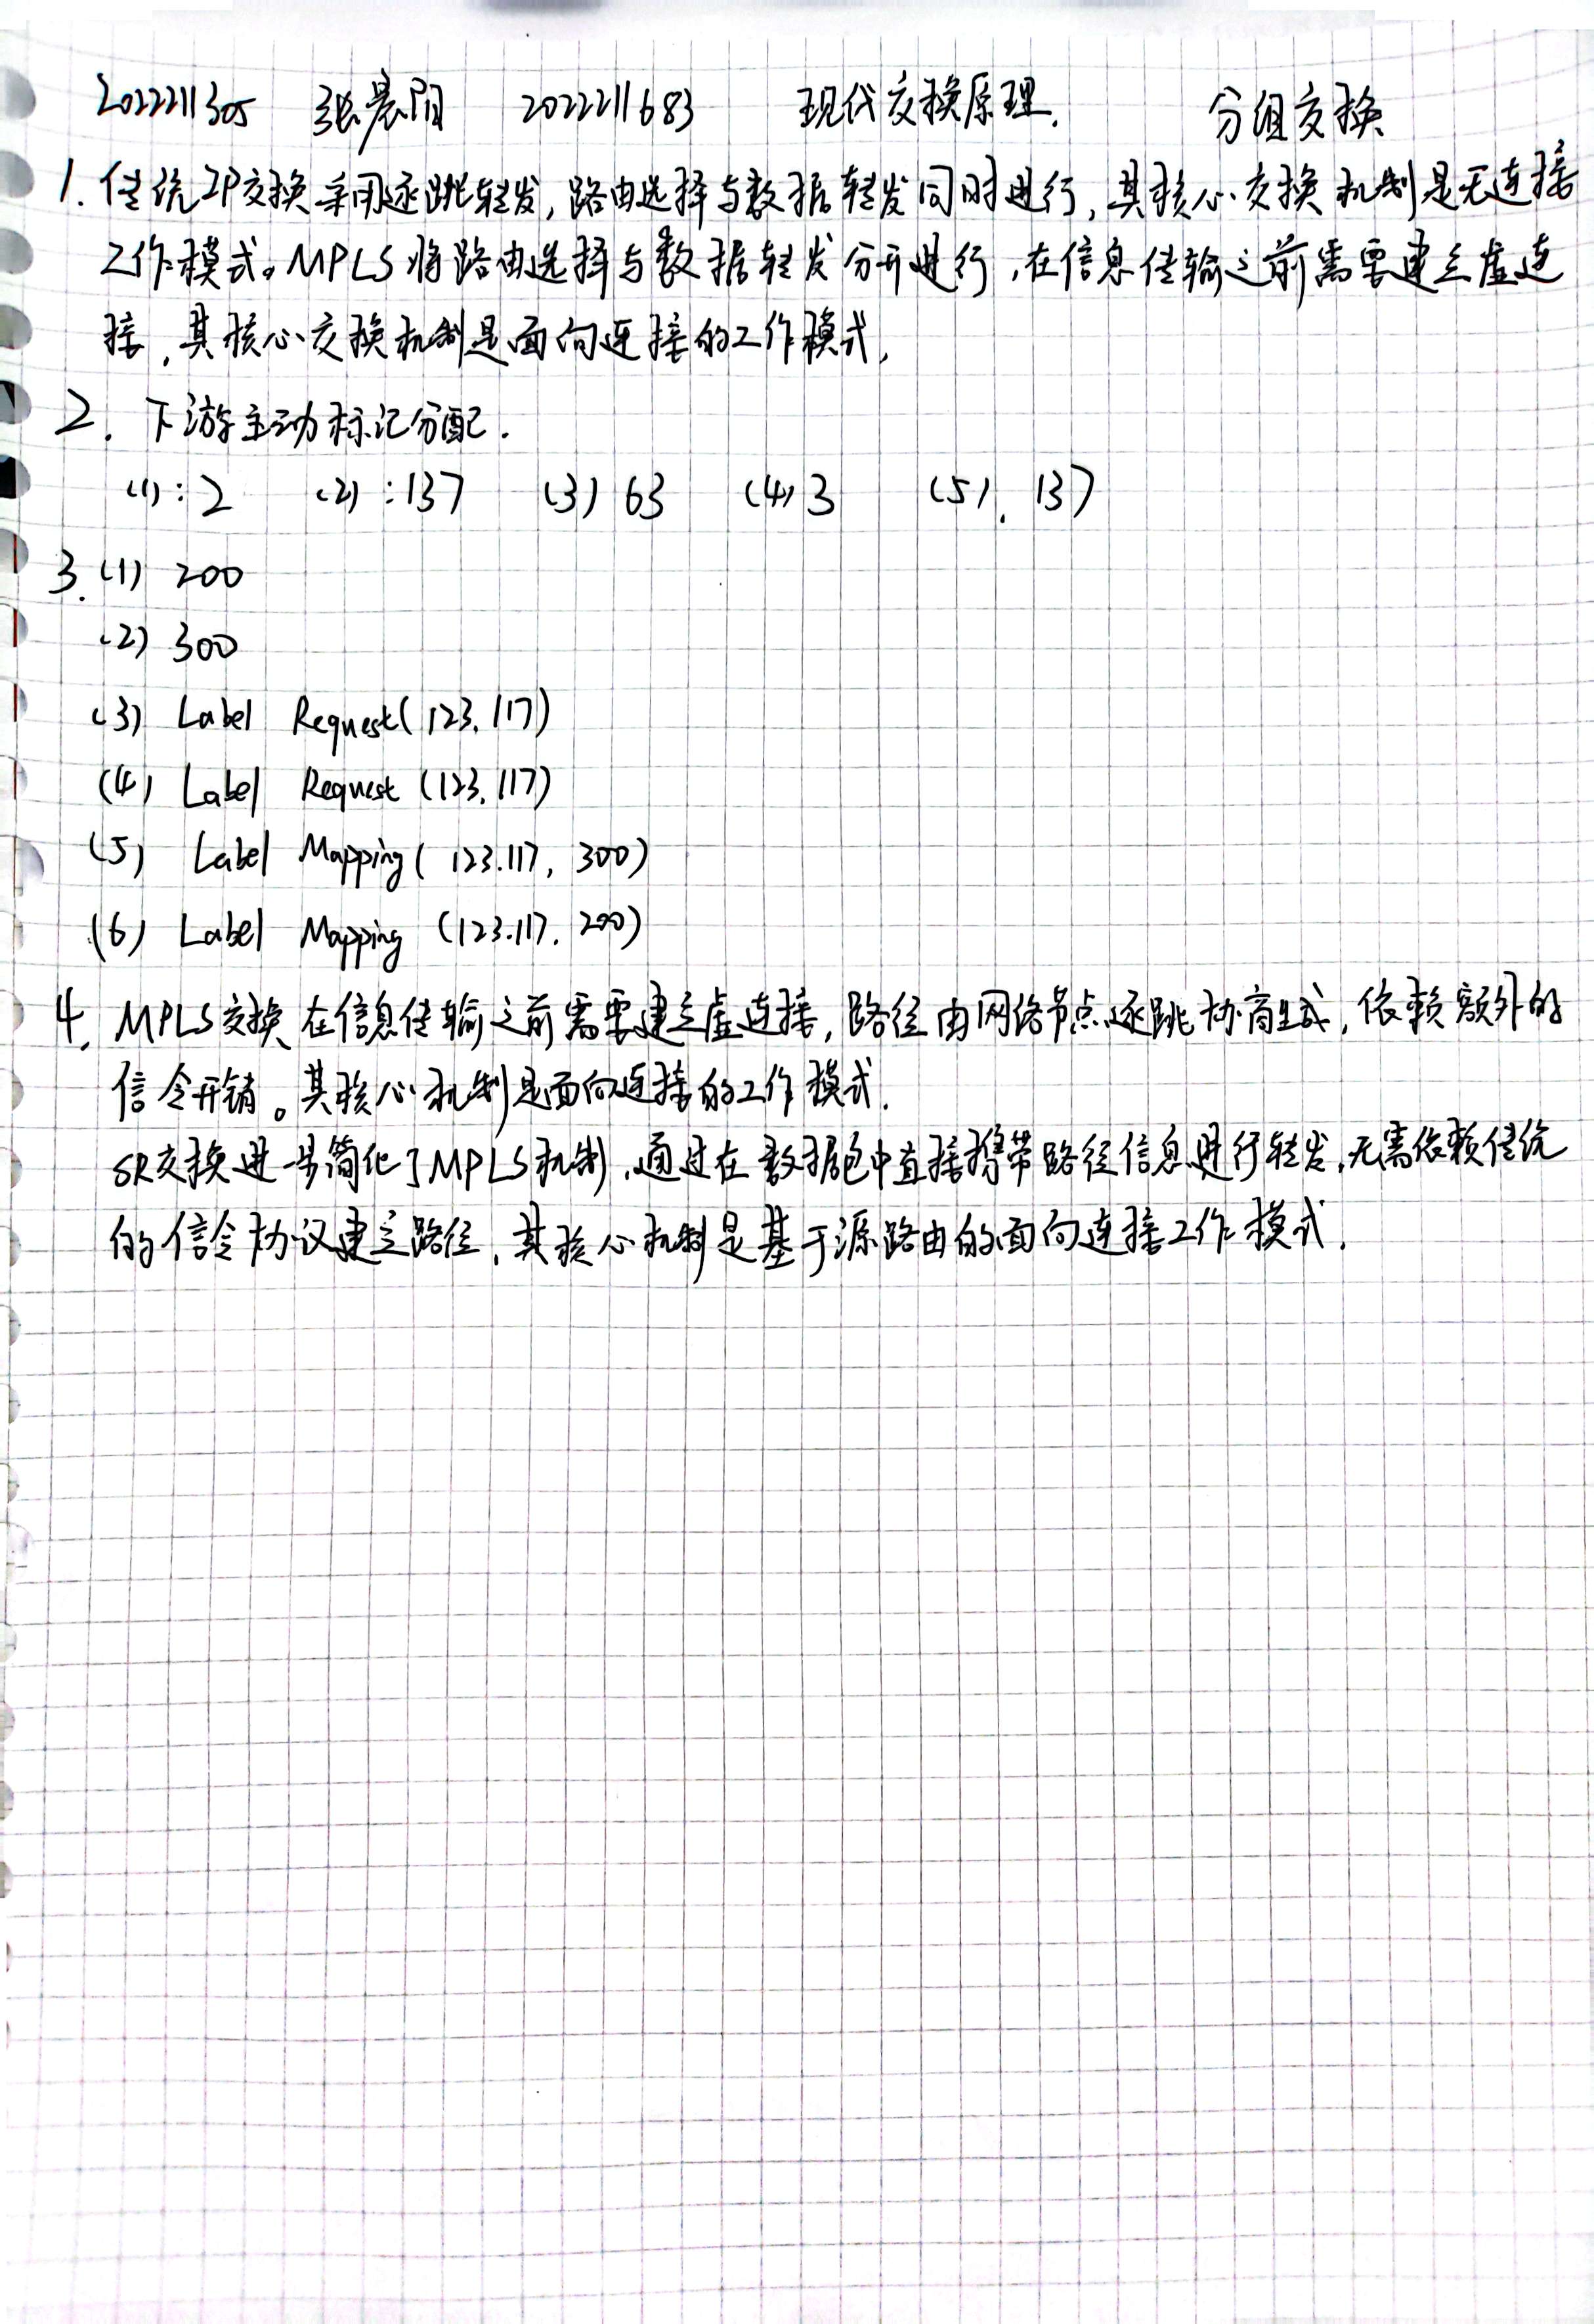 2022211305 张晨阳 2022211683 现代交换原理. 分组交换
1. 传统IP交换采用逐跳转发,路由选择与数据转发同时进行,其核心交换机制是无连接
工作模式。MPLS将路由选择与数据转发分开进行,在信息传输之前需要建立虚连
接,其核心交换机制是面向连接的工作模式,
2. 下游主动标记分配.
(1):2 (2):137 (3) 63 (4) 3 (5). 137
3. (1) 200
(2) 300
(3) Label Request(123.117)
(4) Label Request (123.117)
(5) Label Mapping( 123.117, 300)
(6) Label Mapping (123.117, 200)
4. MPLS交换在信息传输之前需要建立虚连接,路径由网络节点逐跳协商生成,依赖额外的
信令开销。其核心机制是面向连接的工作模式.
SR交换进一步简化了MPLS机制,通过在数据包中直接携带路径信息进行转发,无需依赖传统
的信令协议建立路径,其核心机制是基于源路由的面向连接工作模式.